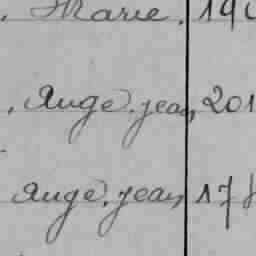 . Marie. 190
. Ange. jean, 201
Ange. jean, 178